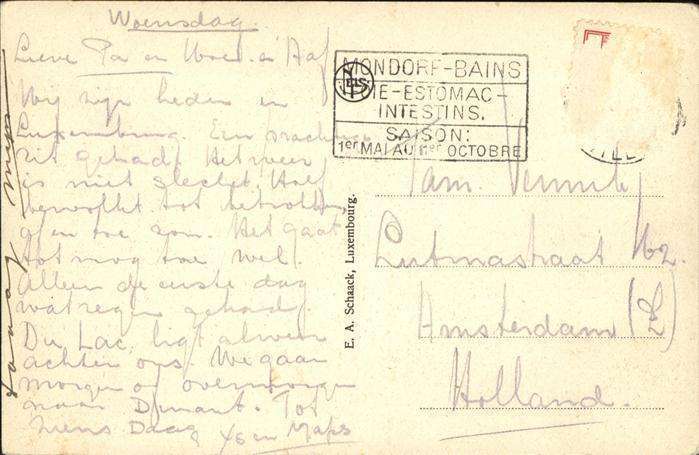 Woensdag.
Lieve Pa en Moed. en
Wij zijn heden in
Luxemburg. Een prachtige
rit gehad. Het weer
is niet slecht. Half
bewolkt tot betrokken
af en toe zon. Het gaat
tot nog toe wel.
Alleen de eerste dag
wat regen gehad.
Du Lac ligt alweer
achter ons. We gaan
morgen of overmorgen
naar Dinant. Tot
ziens Daag
en Maps
MONDORF-BAINS
FOIE-ESTOMAC-
INTESTINS.
SAISON:
1er MAI AU 1er OCTOBRE
E. A. Schaack, Luxembourg.
Fam.
Lutmastraat 62
Amsterdam (Z)
Holland.